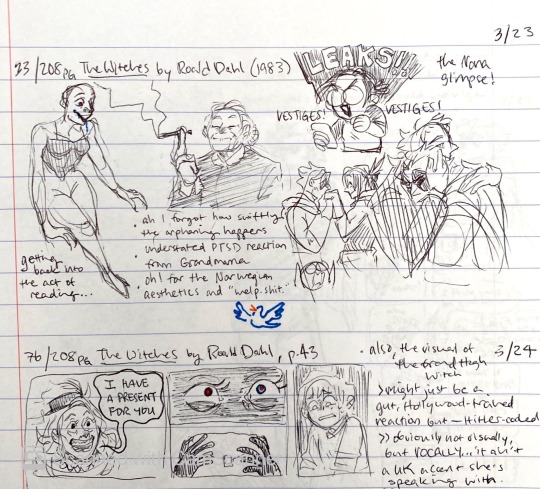 3/23
23/208pg The Witches by Roald Dahl (1983)
LEAKS!!
the Nana
glimpse!
VESTIGES!
VESTIGES!
• ah I forgot how swiftly
the orphaning happens
understated PTSD reaction
from Grandmama
• oh! for the Norwegian
aesthetics and "welp. shit."
getting
back into
the act of
reading...
76/208pg The Witches by Roald Dahl, p.43
3/24
I HAVE
A PRESENT
FOR YOU
• also, the visual of
the Grand High
Witch
>might just be a
gut, Hollywood-trained
reaction but — Hitler-coded
>> obviously not visually,
but VOCALLY... it ain't
a UK accent she's
speaking with.